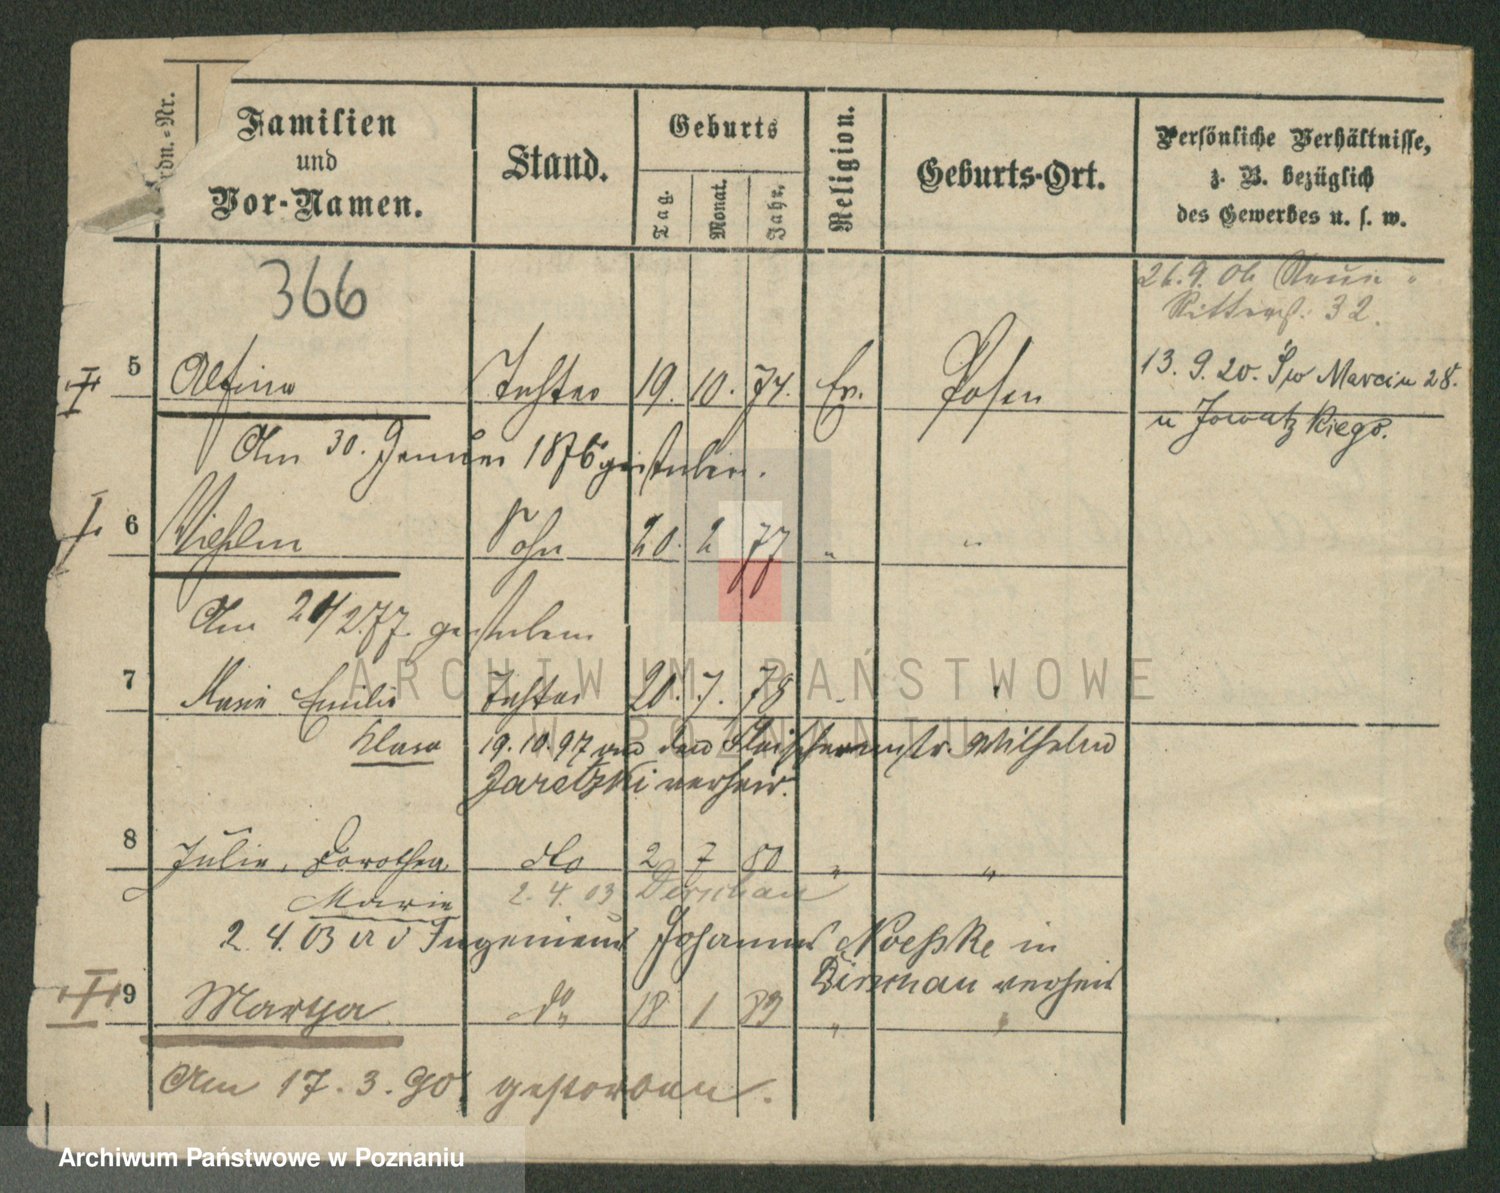 Ordn.-Nr.
Familien
und
Vor-Namen.
Stand.
Geburts
Tag.
Monat.
Jahr.
Religion.
Geburts-Ort.
Persönliche Verhältnisse,
z. B. bezüglich
des Gewerbes u. s. w.
366
26. 9. 06 Neue
Ritterst. 32.
13. 9. 20. Św Marcin 28.
5 Tochter 19. 10. 74. Ev. Posen
Am 30. Januar 1876 gestorben.
6 Wilhelm Sohn 20. 2 77 " "
Am 24/2.77. gestorben
7 Marie Emilie Tochter 20. 7. 78
Klara 19. 10. 97 den Fleischermstr. Wilhelm
Zaretzki verheir.
8 Julie, Dorothea do 2 7 80 " "
Marie 2. 4. 03 Dirschau
2. 4. 03 a d Ingenieur Johannes Noeske in
Dirschau verheir
9 Martha do 18 1 89 " "
Am 17. 3. 90 gestorben.
ARCHIWUM PAŃSTWOWE
W POZNANIU
Archiwum Państwowe w Poznaniu